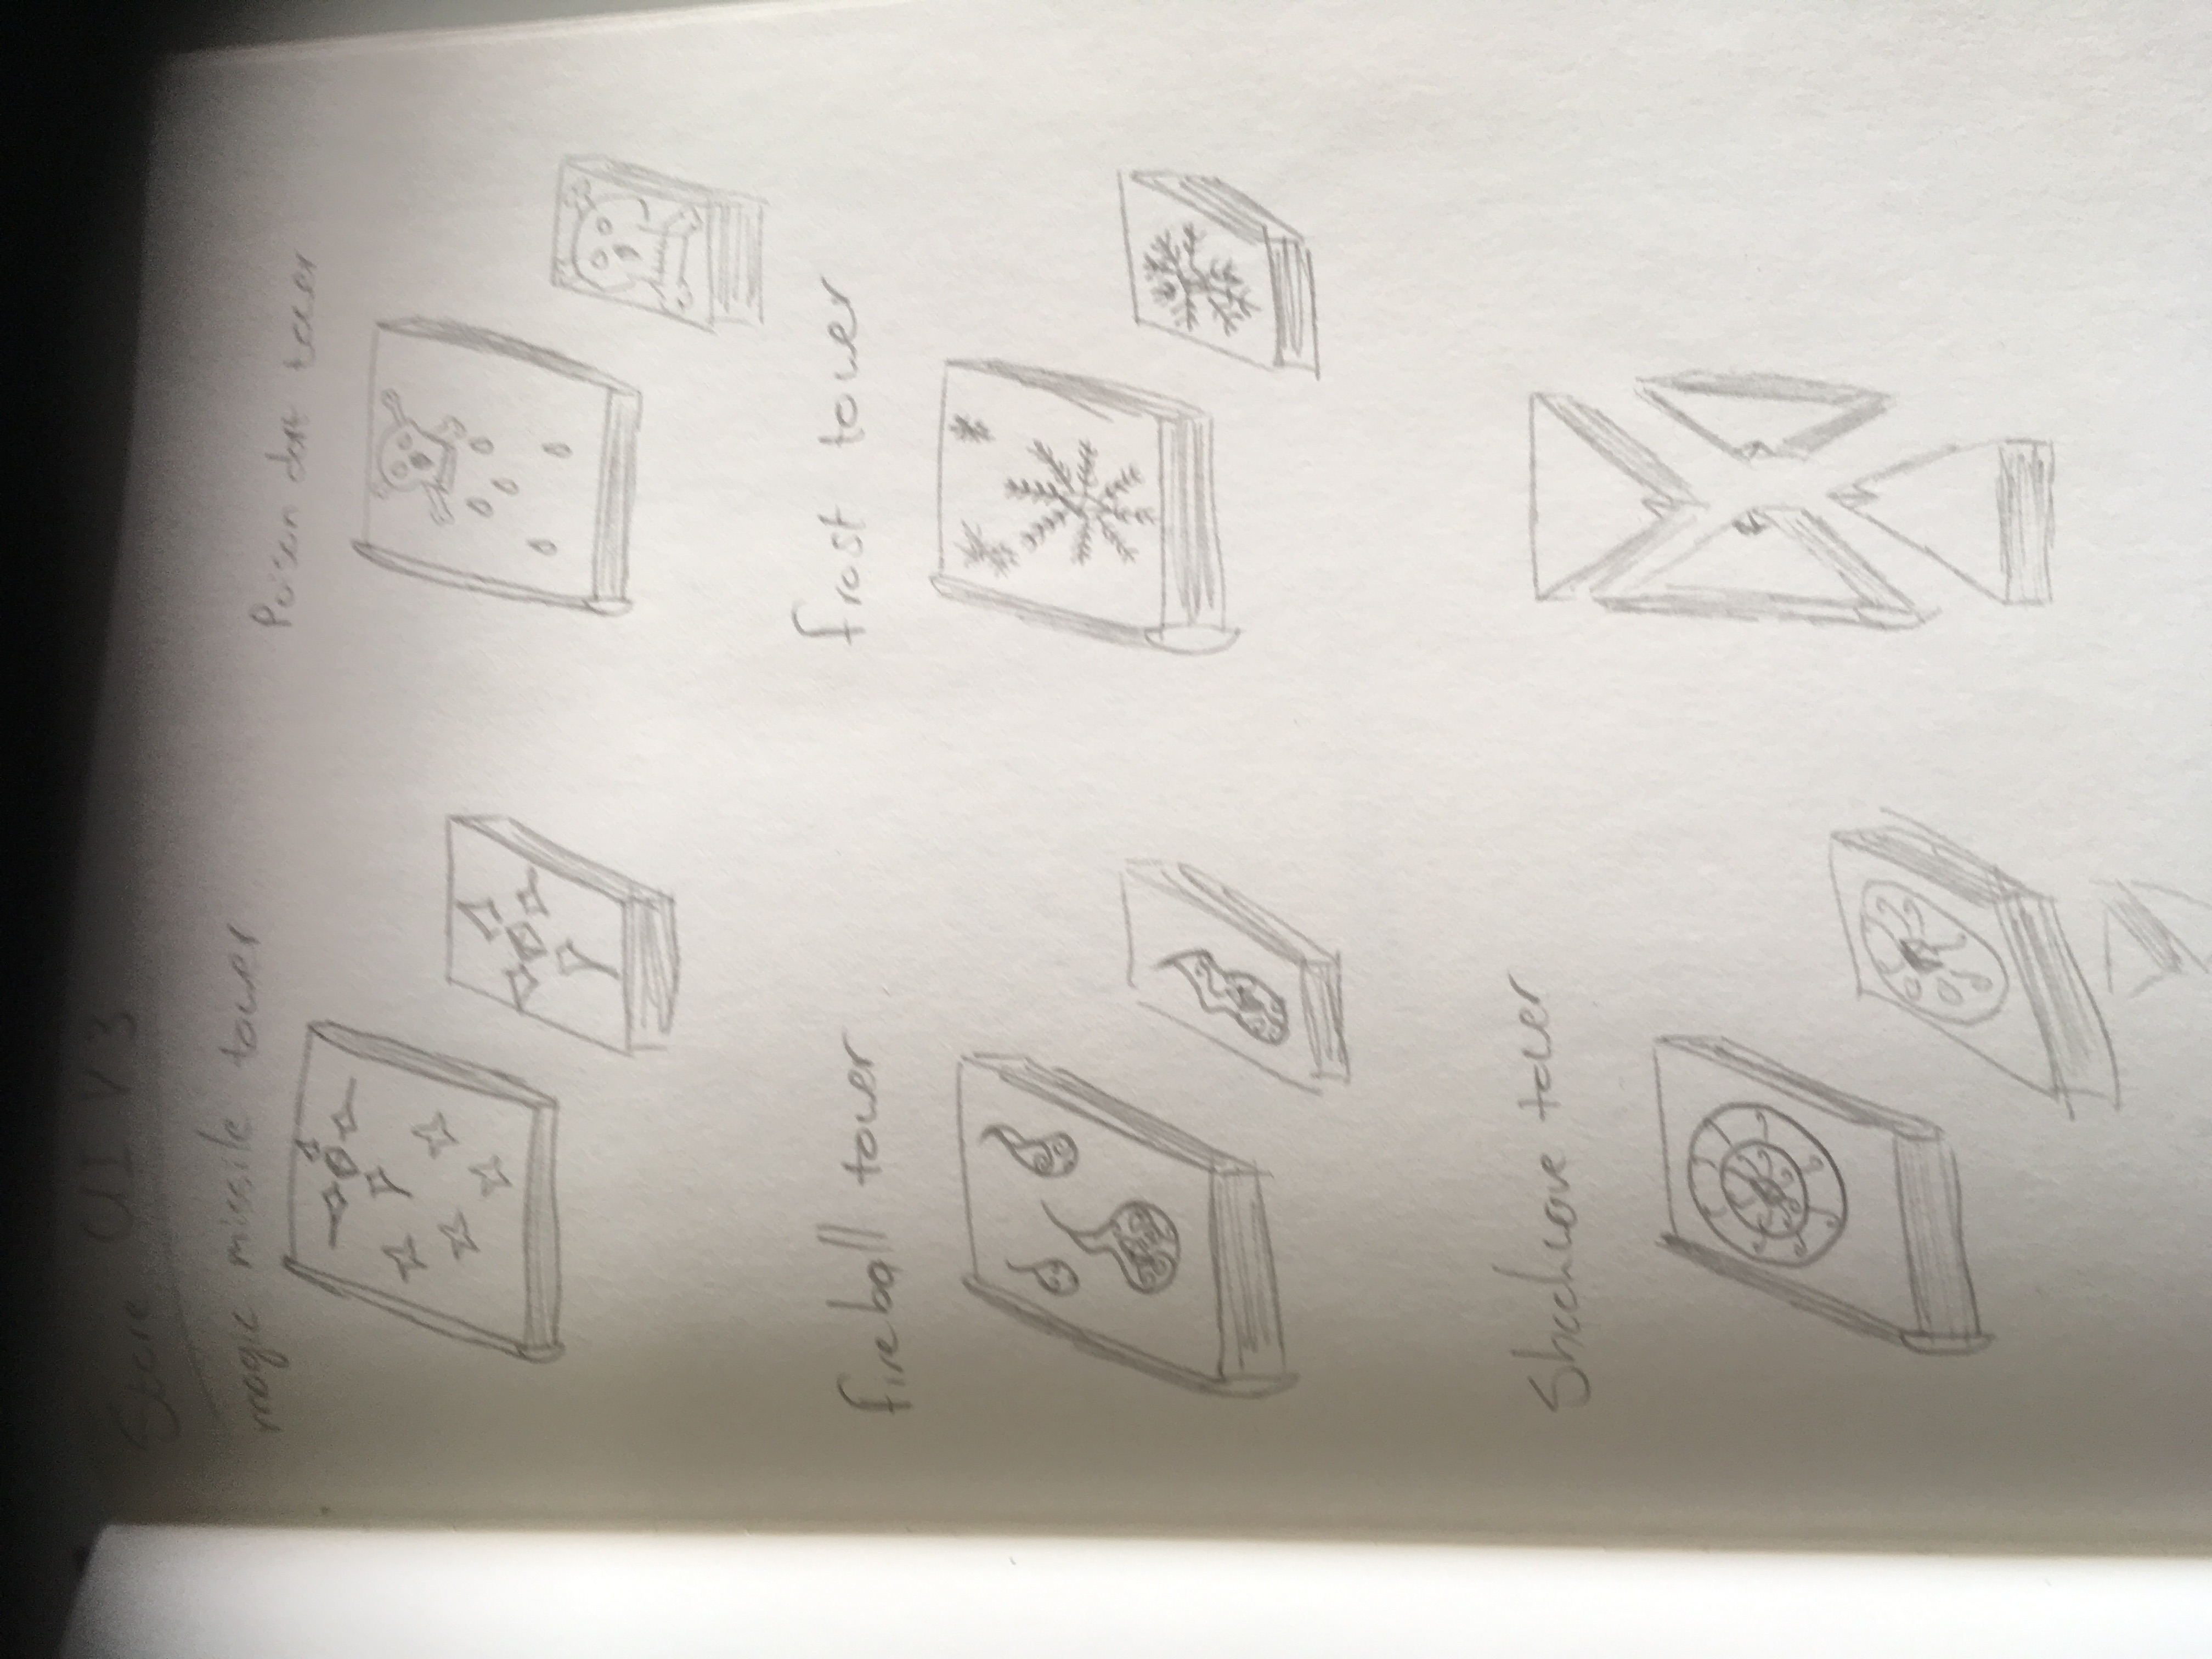 Store UI V3
magic missile tower
Poison dart tower
fireball tower
frost tower
Shockwave tower